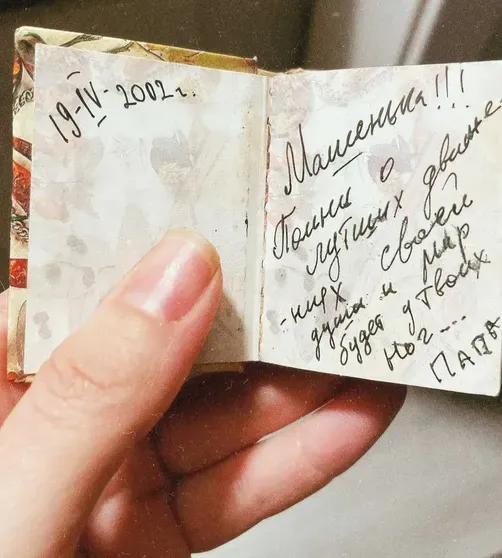 19-IV-2002г.
Машенька!!!
Помни о
лутших движе
-ниях своей
души и мир
будет у твоих
ног...
ПАПА